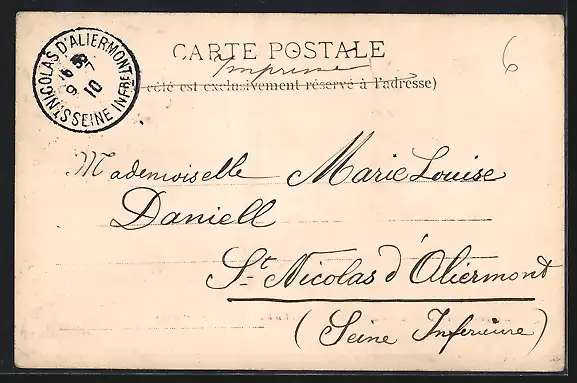 CARTE POSTALE
Imprimé
(côté est exclusivement réservé à l'adresse)
6
ST NICOLAS D'ALIERMONT
SEINE INFRE
10
Mademoiselle Marie Louise
Daniell
St Nicolas d'Aliermont
(Seine Inferieure)